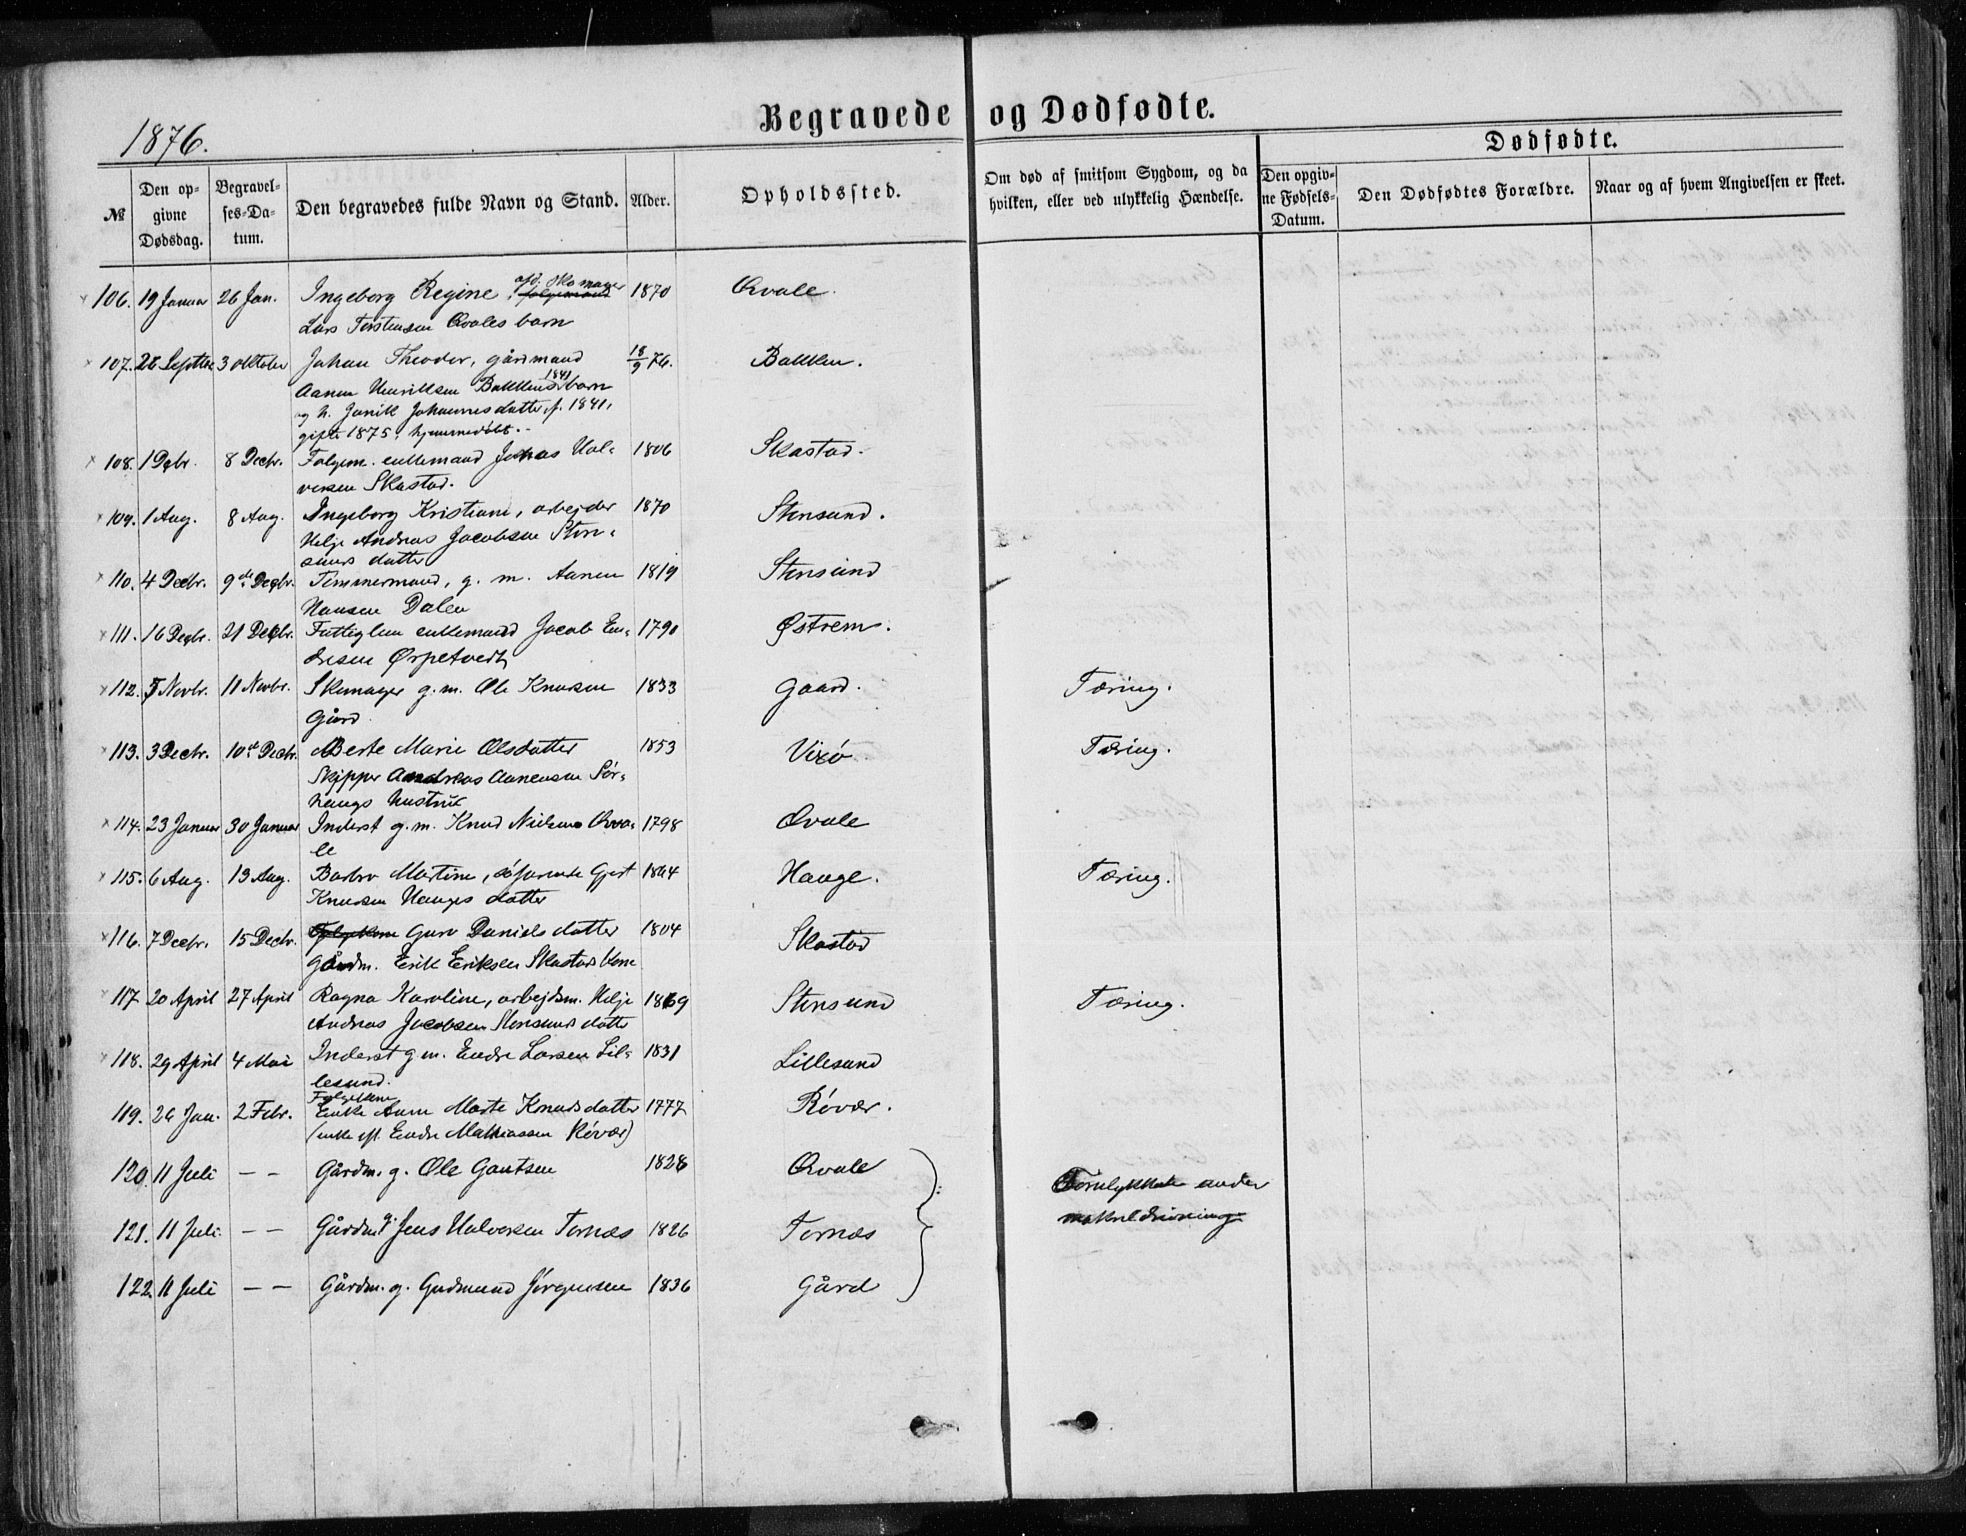 1876.
Begravede og Dødfødte.
Dødfødte.
№
Den opgivne Dødsdag.
Begravelses-Datum.
Den begravedes fulde Navn og Stand.
Alder.
Opholdssted.
Om død af smitsom Sygdom, og da hvilken, eller ved ulykkelig Hændelse.
Den opgivne Fødsels-Datum.
Den Dødfødtes Forældre.
Naar og af hvem Angivelsen er skeet.
106. 19 Januar 26 Jan. Ingeborg Regine, afd. Skomager 1870 Qvale.
Lars Torstensen Qvales barn
107. 26 Septbr 3 Oktober Johan Theodor, gårdmand 18/9 76. Bakken.
Aanen Henriksen Bakkens 1841 barn
og h. Janik Johannesdatter f. 1841,
gifte 1875, hjemmedøbt.
108. 1 Decbr. 8 Decbr. Følgem. enkemand Johas Hal- 1806 Skastad.
versen Skastad.
109. 1 Aug. 8 Aug. Ingeborg Kristiane, arbejder 1870 Stensund.
Helje Andreas Jacobsen Sten-
sunds datter
110. 4 Decbr. 9de Decbr. Timmermand, g. m. Aanen 1819 Stensund
Hansen Dalen
111. 16 Decbr. 21 Decbr. Fattiglem enkemand Jacob En- 1790 Østrem.
dresen Ørpetvedt
112. 5 Novbr. 11 Novbr. Skomager g. m. Ole Knudsen 1833 Gaard. Tæring.
Gård
113. 3 Decbr. 10de Decbr. Berte Marie Olsdatter 1853 Vixø Tæring.
Skipper Andreas Aanensen Sør-
haugs hustru
114. 23 Januar 30 Januar Inderst g. m. Knud Nielsen Qva- 1798 Qvale
le
115. 6 Aug. 13 Aug. Barbro Martine, søfarende Gjert 1864 Hauge. Tæring.
Knudsen Hauges datter
116. 7 Decbr. 15 Decbr. Guro Danielsdatter 1804 Skastad
Gårdm. Erik Eriksen Skastads kone
117 20 April 27 April Ragna Karoline, arbejdsm. Helje 1869 Stensund Tæring.
Andreas Jacobsen Stensunds datter
118. 29 April 4 Mai Inderst g. m. Endre Larsen Lil- 1831 Lillesund
lesund.
Følgekone
119. 26 Jan. 2 Febr. Enke Anne Marte Knudsdatter 1777 Røvær.
(enke eft. Endre Mathiassen Røvær)
120. 11 Juli – – Gårdm. g. Ole Gautsen 1828 Qvale Forulykket under
121. 11 Juli – – Gårdm. g. Jens Halvorsen Tornæs 1826 Tornæs makreldrivning
122. 11 Juli – – Gårdm. g. Gudmund Jørgensen 1836 Gård